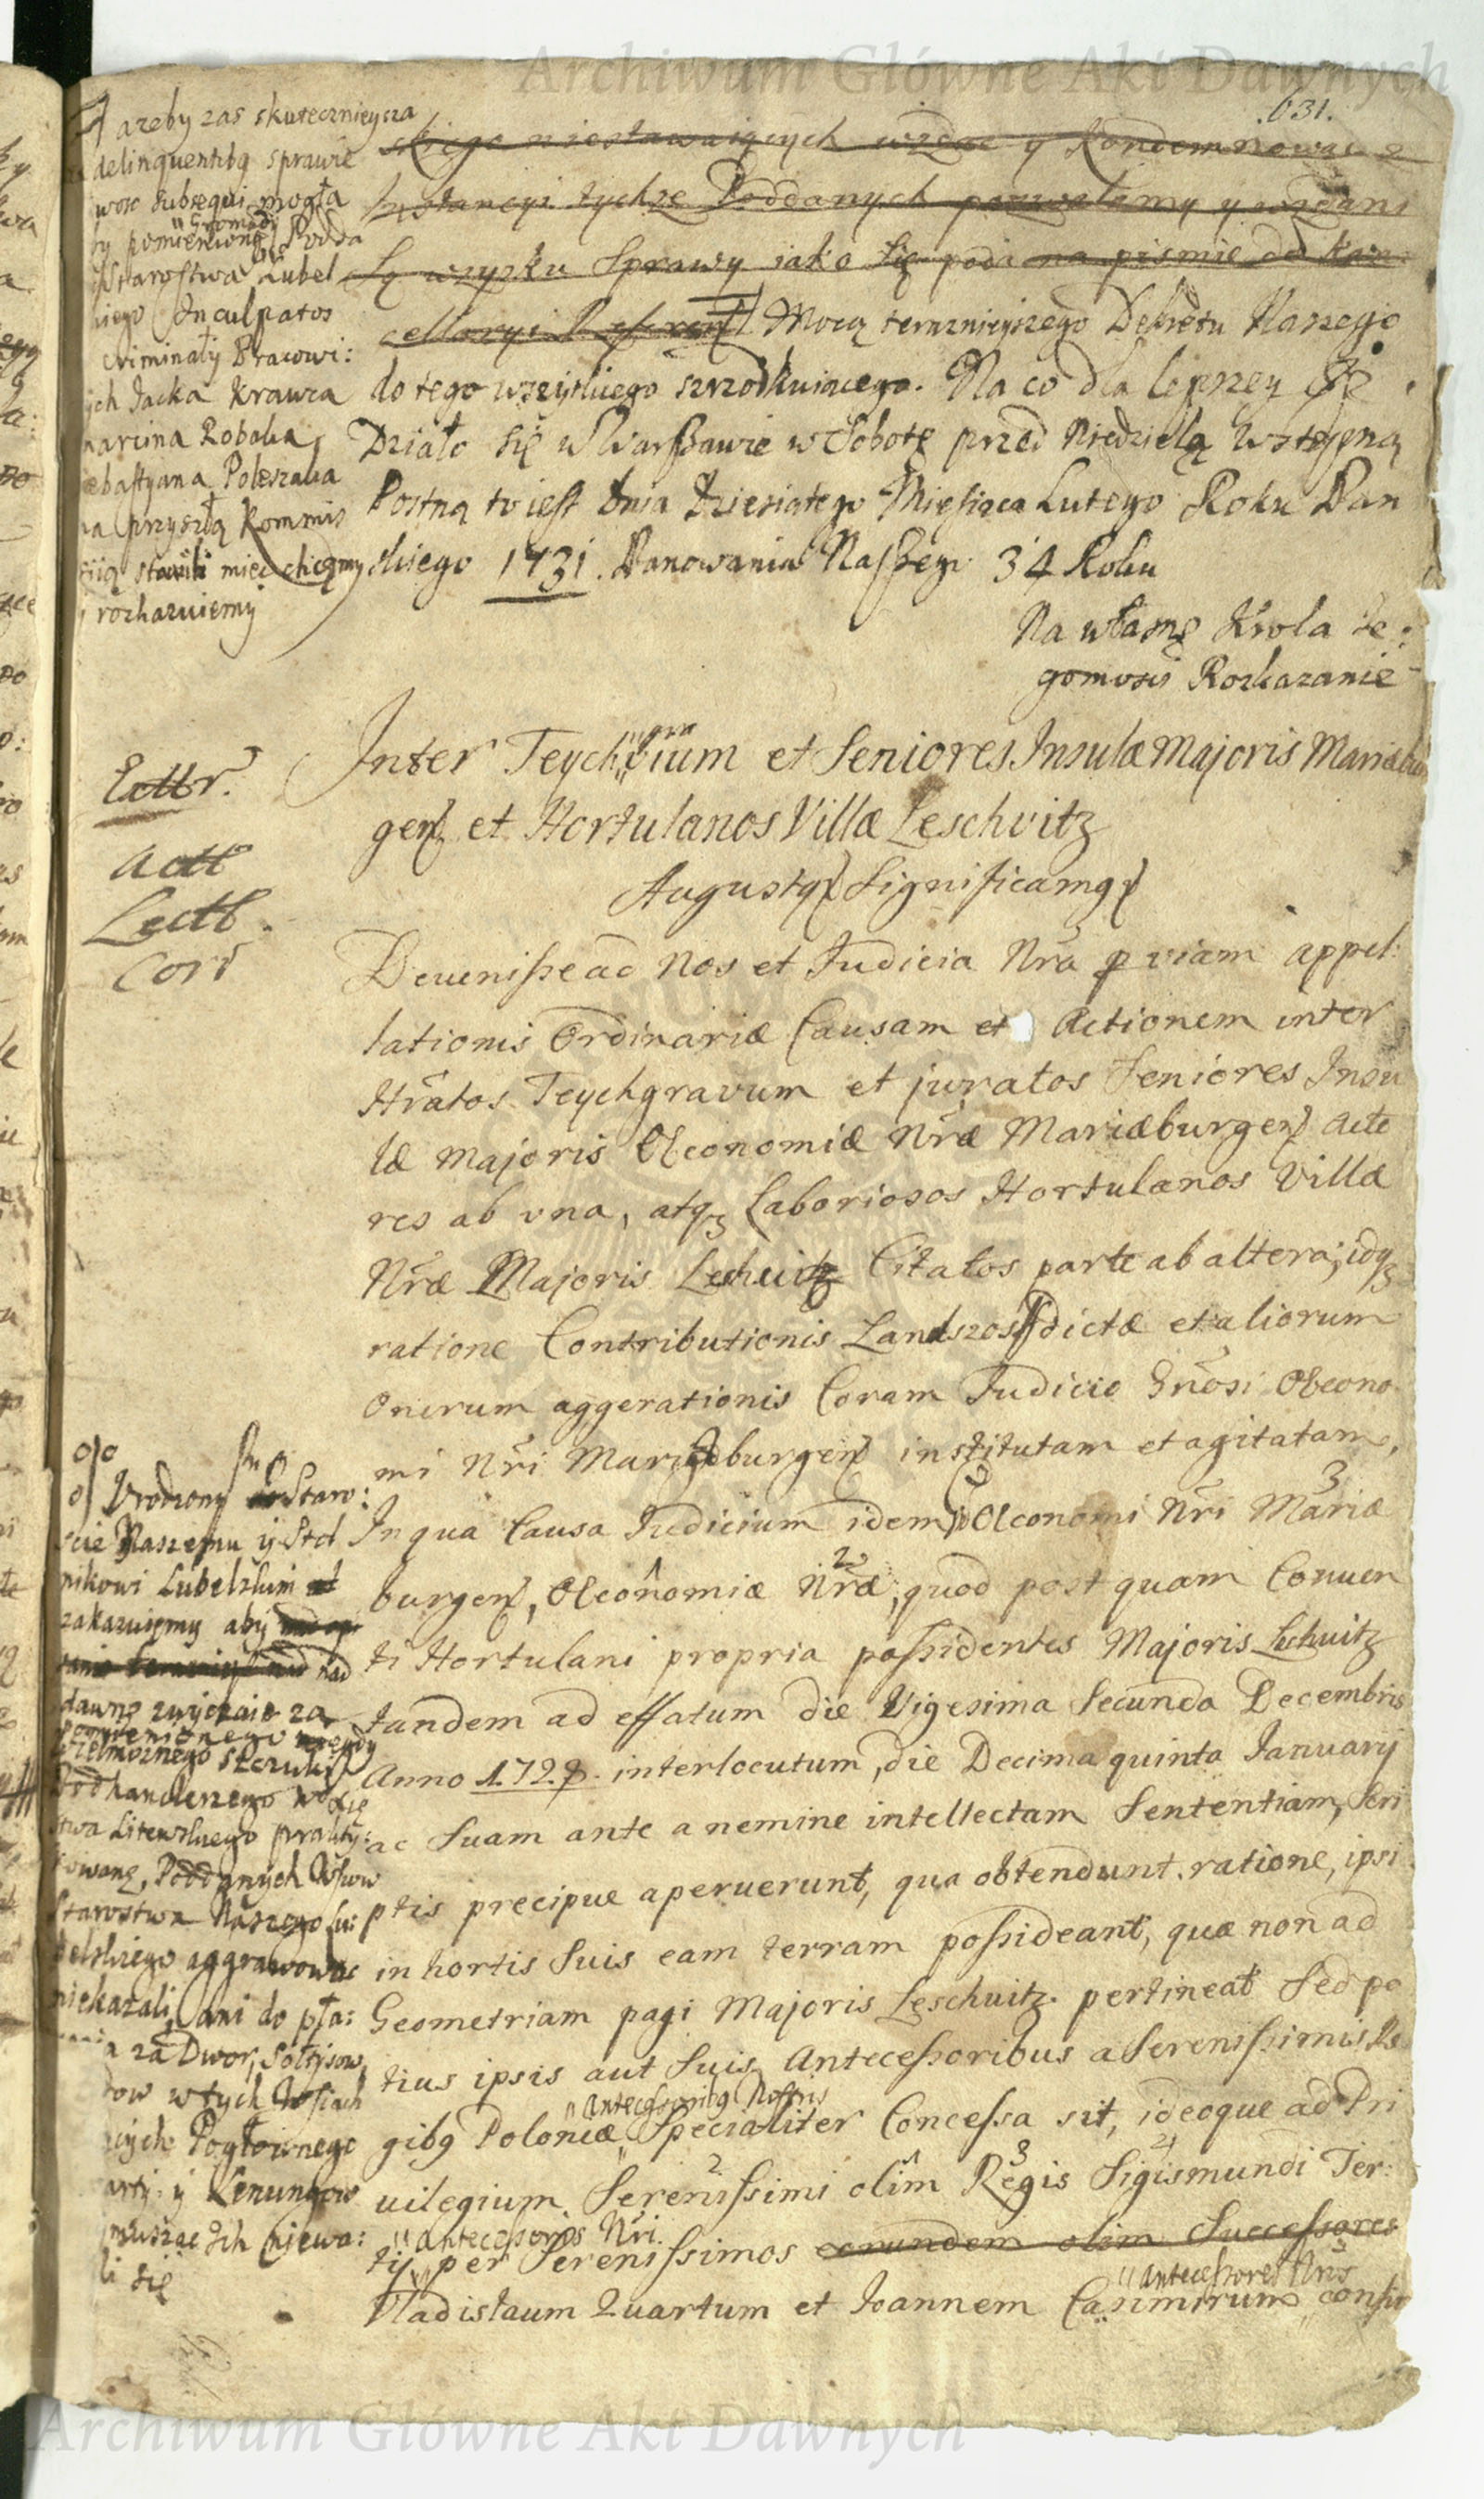 Archiwum Główne Akt Dawnych
631.
azeby zas skutecznieysza
delinquentibg sprawie
wosc subsequi mogła
Gromady
by pomienione Podda
Starostwa Lubel
skiego Inculpatos
criminały Pracowi:
tych Jacka Krawca
Marcina Robaka
Sebastyana Poleszaka
na przyszłą Kommis
syią stawili miec chcemy
y rozkazuiemy
skiego niestawaiących wzdac y kondemnowac z
Instancyi tychze Poddanych pozwalamy y wzdani
są wzysku Sprawy iako się poda na pismie od kan:
cellaryi Referent Mocą teraznieyszego Dekretu Naszego
do tego wszystkiego szrzodkuiącego. Na co dla lepszey etc
Działo się w Warszawie w Sobotę przed Niedzielą Wstępną
Postną to iest dnia Dziesiątego Miesiąca Lutego Roku Pan
skiego 1731. Panowania Naszego 34 Roku
Na własne Krola Je:
gomosci Rozkazanie
Extr.
Actt
Lectt.
Corr
Inter Teychgravium et Seniores Insulæ Majoris Mariæbur
gens et Hortulanos Villæ Leschvitz
Augustq Significamq
Devenisse ad Nos et Judicia Nra p viam appel:
lationis Ordinariæ Causam et Actionem inter
Hratos Teychgravum et juratos Seniores Insu
læ Majoris Oeconomiæ Nræ Mariæburgens Acto
res ab una, atq Laboriosos Hortulanos Villæ
Nræ Majoris Leschvitz Citatos parte ab altera, idq
ratione Contributionis Landszoss dictæ et aliorum
Onerum aggerationis Coram Judicio Gnosi Oecono
mi Nri Mariæburgens institutam et agitatam,
In qua Causa Judicium idem Oeconomi Nri Mariæ
burgens, Oeconomiæ Nræ, quod post quam Conven
ti Hortulani propria possidentes Majoris Leschvitz
tandem ad effatum die Vigesima Secunda Decembris
Anno 1729. interlocutum, die Decima quinta Januarij
ac Suam ante a nemine intellectam Sententiam, Scri
ptis precipue aperuerunt, qua obtendunt ratione, ipsi
in hortis Suis eam terram possideant, quæ non ad
Geometriam pagi Majoris Leschvitz pertineat Sed po
tius ipsis aut Suis Antecessoribus a Serenissimis Re
Antecessoribg Nostris
gibg Poloniæ Specialiter Concessa sit, ideoque ad Pri
vilegium Serenissimi olim Regis Sigismundi Ter:
Antecessoris Nri
tij per Serenissimos eorundem olim Successores
Antecessores Nros
Vladislaum Quartum et Joannem Casimirum confir
Urodzony Staro:
scie Naszemu y Stol
nikowi Lubelskim
zakazuiemy aby
nad
dawne zwyczaie za
pomienionego
Wielmoznego Szczuki
Podkanclerzego W Xię
stwa Litewskiego prakty:
kowane, Poddanych Wsiow
Starostwa Naszego Lu:
belskiego aggravowac
niekazali, ani do pła:
cenia za Dwor, Sołtysow
w tych Wsiach
Pogłownego
y
muszac Ich niewa:
li się
Archiwum Główne Akt Dawnych